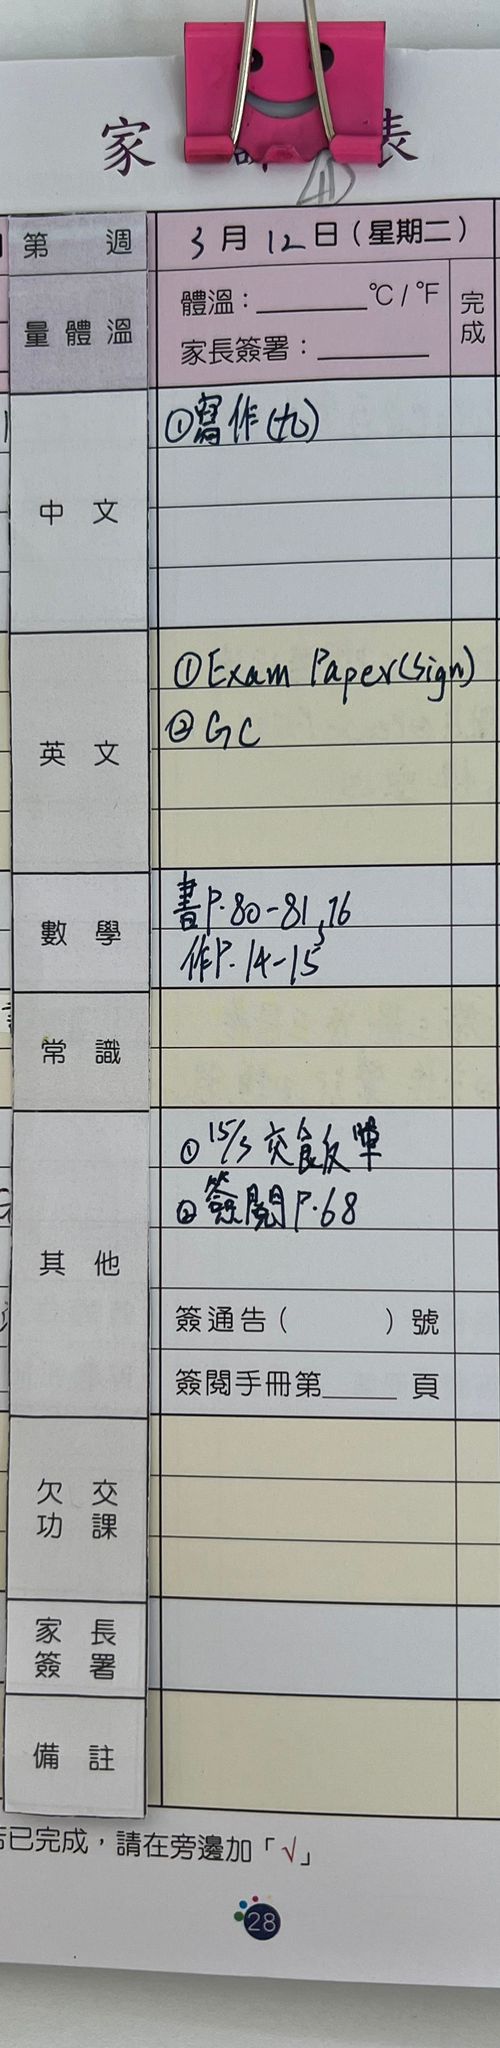 家 表
第 週
3月12日(星期二)
量體溫
體溫：________℃/℉
家長簽署：________
完成
中文
①寫作(九)
英文
①Exam Paper(Sign)
②GC
數學
書P.80-81,76
作P.14-15
常識
其他
①15/3交飯單
②簽閱P.68
簽通告( )號
簽閱手冊第_____頁
欠交
功課
家長
簽署
備註
已完成，請在旁邊加「√」
28